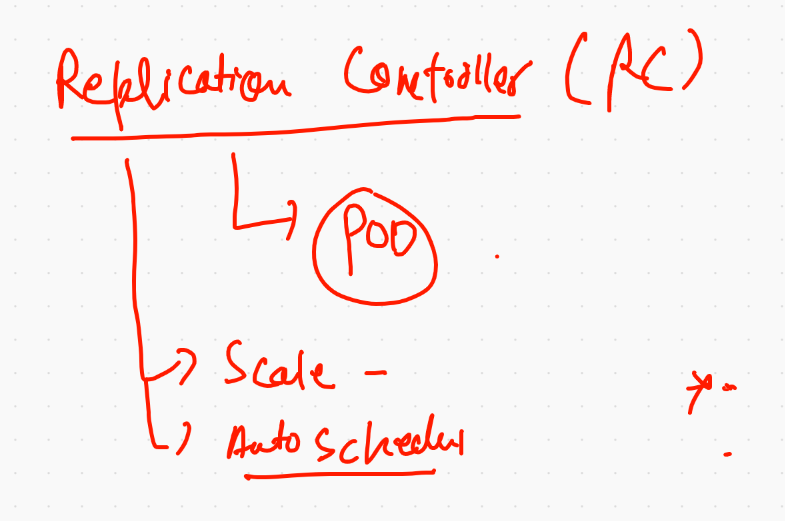 Replication Controller (RC)
POD
Scale -
Auto Schedul